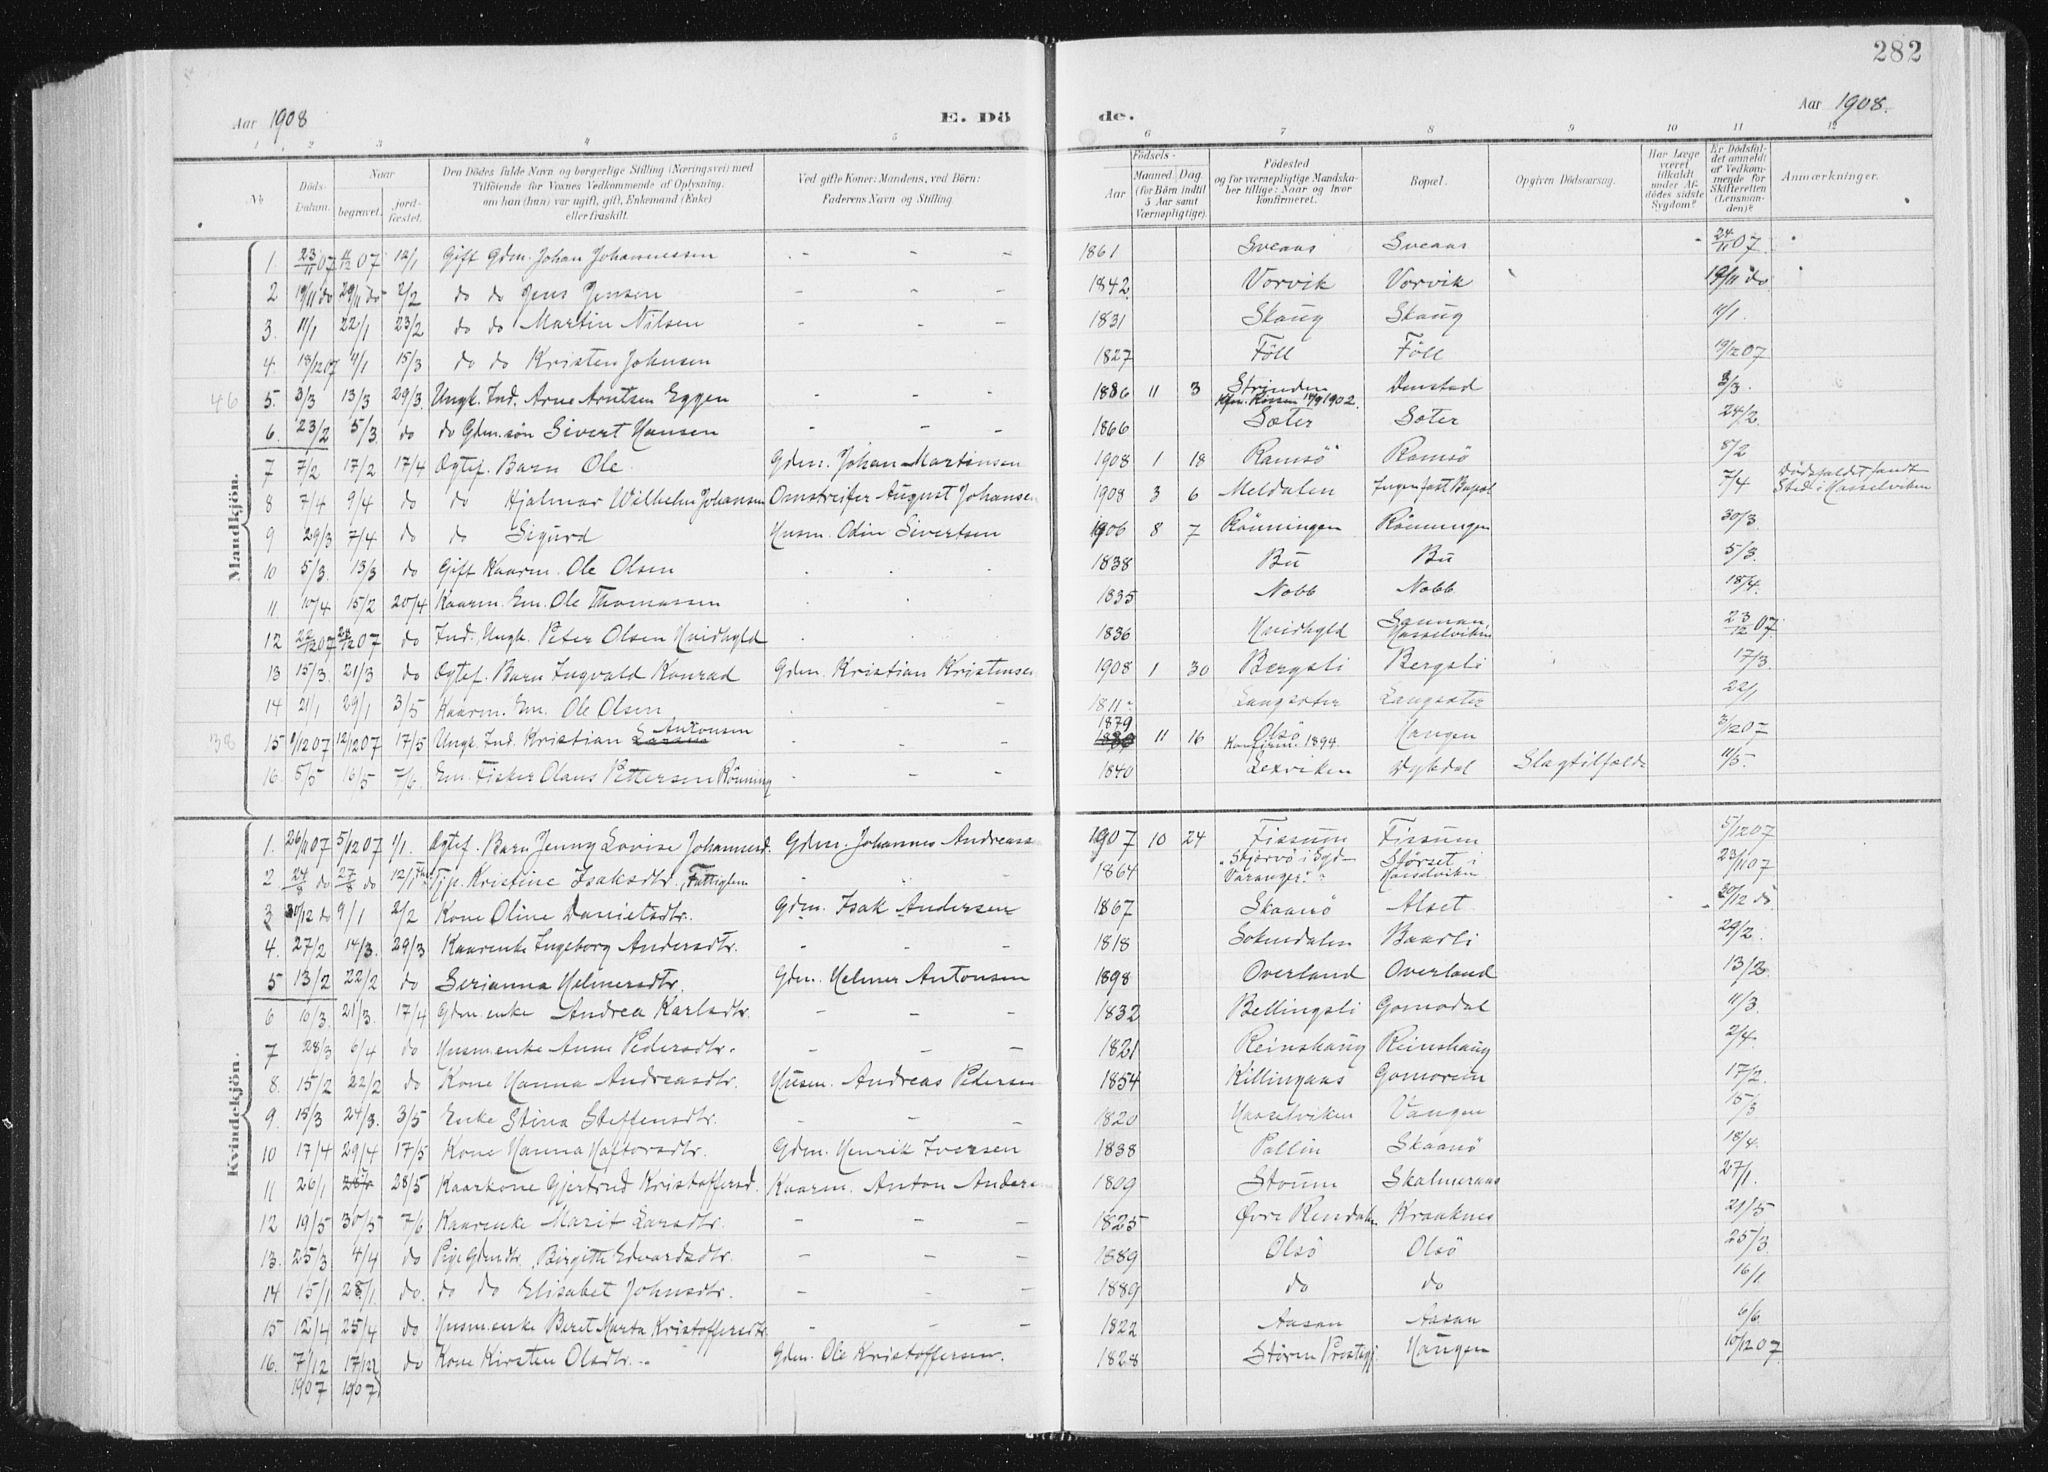 282
Aar 1908
E. Dö
de.
Aar 1908.
1 2 3 4 5 6 7 8 9 10 11 12
No
Döds-Datum.
Naar
begravet.
jord-festet.
Den Dödes fulde Navn og borgerlige Stilling (Næringsvei) med
Tilföiende for Voxnes Vedkommende af Oplysning,
om han (hun) var ugift, gift, Enkemand (Enke)
eller fraskilt.
Ved gifte Koner: Mandens, ved Börn:
Faderens Navn og Stilling.
Födsels-
Aar
Maaned. Dag.
(for Börn indtil
5 Aar samt
Værnepligtige).
Födested
og for værnepligtige Mandska-
ber tillige: Naar og hvor
Konfirmeret.
Bopæl.
Opgiven Dödsaarsag.
Har Læge
været
tilkaldt
under Af-
dödes sidste
Sygdom?
Er Dödsfal-
det anmeldt
af Vedkom-
mende for
Skifteretten
(Lensman-
den)?
Anmærkninger.
Mandkjön.
1. 23/11 07 11/12 07 12/1 Gift Gdm. Johan Johannessen - - - 1861 Sveaas Sveaas 24/11 07.
2 19/11 do 29/11 do 2/2 do do Jens Jensen - - - 1842 Vorvik Vorvik 19/11 do
3. 11/1 22/1 23/2 do do Martin Nilsen - - - 1831 Skaug Skaug 11/1.
4. 18/12 07 4/1 15/3 do do Kristen Johnsen 1827 Föll Föll 19/12 07
46 5. 3/3 13/3 29/3. Ungk. Ind. Arne Arntsen Eggen - - - 1886 11 3 Strinden Denstad 3/3.
Kfm. Rissen 14/9 1902.
6. 23/2 5/3. do do Gdm.sön Sivert Hansen - - - 1866 Sæter Sæter 24/2.
7 7/2. 17/2 17/4 Ogtef. Barn Ole. Gdm. Johan Martinsen 1908 1 18 Ramsö Ramsö 8/2
8 7/4 9/4 do do Hjalmar Wilhelm Johansen Omstreifer August Johansen 1908 3 6 Meldalen Ingen fast Bopæl 7/4 Dödsfaldet fandt
Sted i Hasselviken
9 29/3 7/4 do do Sigurd Husm. Odin Sivertsen 1906 8 7 Rönningen Rönningen 30/3
10 5/3. 13/3 do Gift Kaarm. Ole Olsen 1838 Bu Bu 5/3.
11 10/4 15/2 20/4 Kaarm. Em. Ole Thomassen 1835 Nobb Nobb. 18/4.
12 22/12 07 24/12 07 do Ind. Ungk. Peter Olsen Hvidhyld 1836 Hvidhyld Sannan Hasselviken 23/12 07
13 15/3. 21/3 do Ogtef. Barn Ingvald Konrad Gdm. Kristian Kristensen 1908 1 30 Bergsli Bergsli 17/3.
14 21/1 29/1 3/5 Kaarm. Em. Ole Olsen - 1811 Langsæter Langsæter 22/1
38 15 9/12 07 12/12 07 17/5 Ungk. Ind. Kristian Larsen Antonsen - - - 1879 11 16 Olsö Hangen 3/2 07
Konfirm. 1894.
16. 5/5 16/5 7/6 Em. Fisker Olaus Pettersen Rönning - - - 1840 Lexviken Dybdal Slagtilfælde 11/5.
Kvindekjön.
1. 26/11 07 5/12 07 1/1. Ogtef. Barn Jenny Lovise Johannesd. Gdm. Johannes Andreass 1907 10 24 Fissum Fissum 5/12 07
2 24/8 do 27/8 do 12/1 Tjp. Kristine Isaksdtr. Fattiglem - 1864 "Skjervö i Syd- Varanger." Störset i Hasselviken 23/11 07
3 30/12 do 9/1 2/2 Kone Oline Danielsdtr. Gdm. Isak Andersen 1867 Skaanö Alset 30/12 do.
4. 27/2 14/3. 29/3 Kaarenke Ingeborg Andersdtr. - - - 1818 Soknedalen Baarli 29/2.
5 13/2 22/2 do Serianna Helmersdtr. Gdm. Helmer Antonsen 1898 Overland Overland 13/2
6 10/3. 21/3. 17/4 Gdm.enke Andrea Karlsdtr. - - - 1832 Bellingsli Gomodal 11/3.
7 28/3 6/4 do Husm.enke Anne Pedersdtr. - - - 1821 Reinshaug Reinshaug 2/4.
8. 15/2 22/2 do Kone Hanna Andreasdtr. Husm. Andreas Pedersen 1854 Killingaas Gomoren 17/2.
9. 15/3 24/3. 3/5 Enke Stina Steffensdtr. - - 1820 Hasselviken Vangen 15/3
10 17/4 29/4 17/5 Kone Hanna Haftorsdtr. Gdm. Henrik Iversen 1838 Pallin Skaanö 18/4.
11 26/1 28/5 Kaarkone Gjertrud Kristoffersd. Kaarm. Anton Anders 1809 Stoum Skalmeraas 27/1.
12 19/5 30/5 7/6 Kaarenke Marit Larsdtr. - - - 1825 Øvre Rendalen Kraaknes 21/5
13. 25/3 4/4 do Pige Gdmdtr. Birgitte Edvardsdtr. - - - 1889 Olsö Olsö 25/3.
14 15/1 28/1. do. do do Elisabet Johnsdtr. - - - 1889 do do 16/1.
15 12/4 25/4 do Husm.enke Beret Marta Kristoffersdtr. - - - 1822 Aasan Aasan 6/6.
16. 7/12 17/12 do Kone Kirsten Olsdtr. Gdm. Ole Kristoffersen. 1828 Stören Prestegj. Haugen 10/12 07.
1907 1907